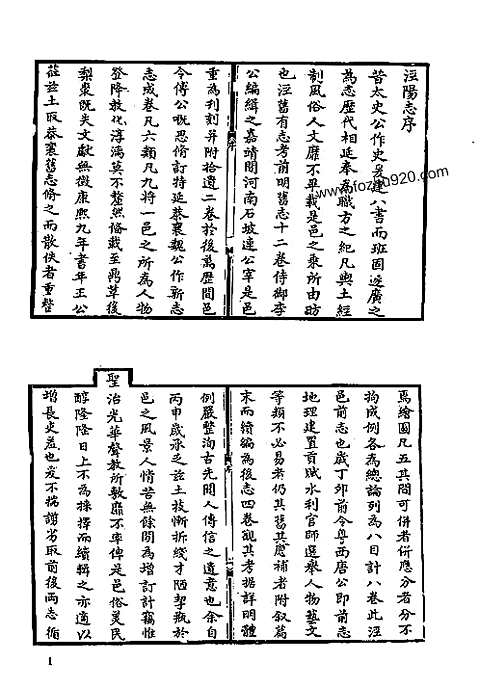 泾陽志序
昔太史公作史爰建八書而班固遂廣之
為志歷代相延奉為職方之紀凡輿土經
制風俗人文靡不畢載是邑之乘所由昉
也泾舊有志考前明舊志十二卷侍御李
公編緝之嘉靖間河南石坡連公宰是邑
重為刊刻并附拾遺二卷於後萬歷間邑
令傅公嘅思修訂特延恭襄魏公作新志
志成卷凡六類凡九將一邑之所為人物
登降教化淳漓莫不犂然備載至鼎革後
梨棗既失文獻無徵康熙九年書年王公
莅兹土取恭襄舊志修之而散佚者重整
焉繪圖凡五其間可併者併應分者分不
拘成例各為總論列為八目計八卷此泾
邑前志也歲丁卯前令粤西唐公即前志
地理建置貢賦水利官師選舉人物藝文
等類不必易者仍其舊其應補者附叙篇
末而續編為後志四卷觀其考據詳明體
例嚴整洵古先聞人傳信之遺意也余自
丙申歲承乏兹土扳慚折綫才陋挈瓶於
邑之風景人情苦無餘閒為增訂計竊惟
聖治光華聲教所敷靡不率俾是邑俗美民
醇隆隆日上不為採擇而續輯之亦適以
增長吏羞也爰不揣谫劣取前後兩志循
www.foz0920.com
1